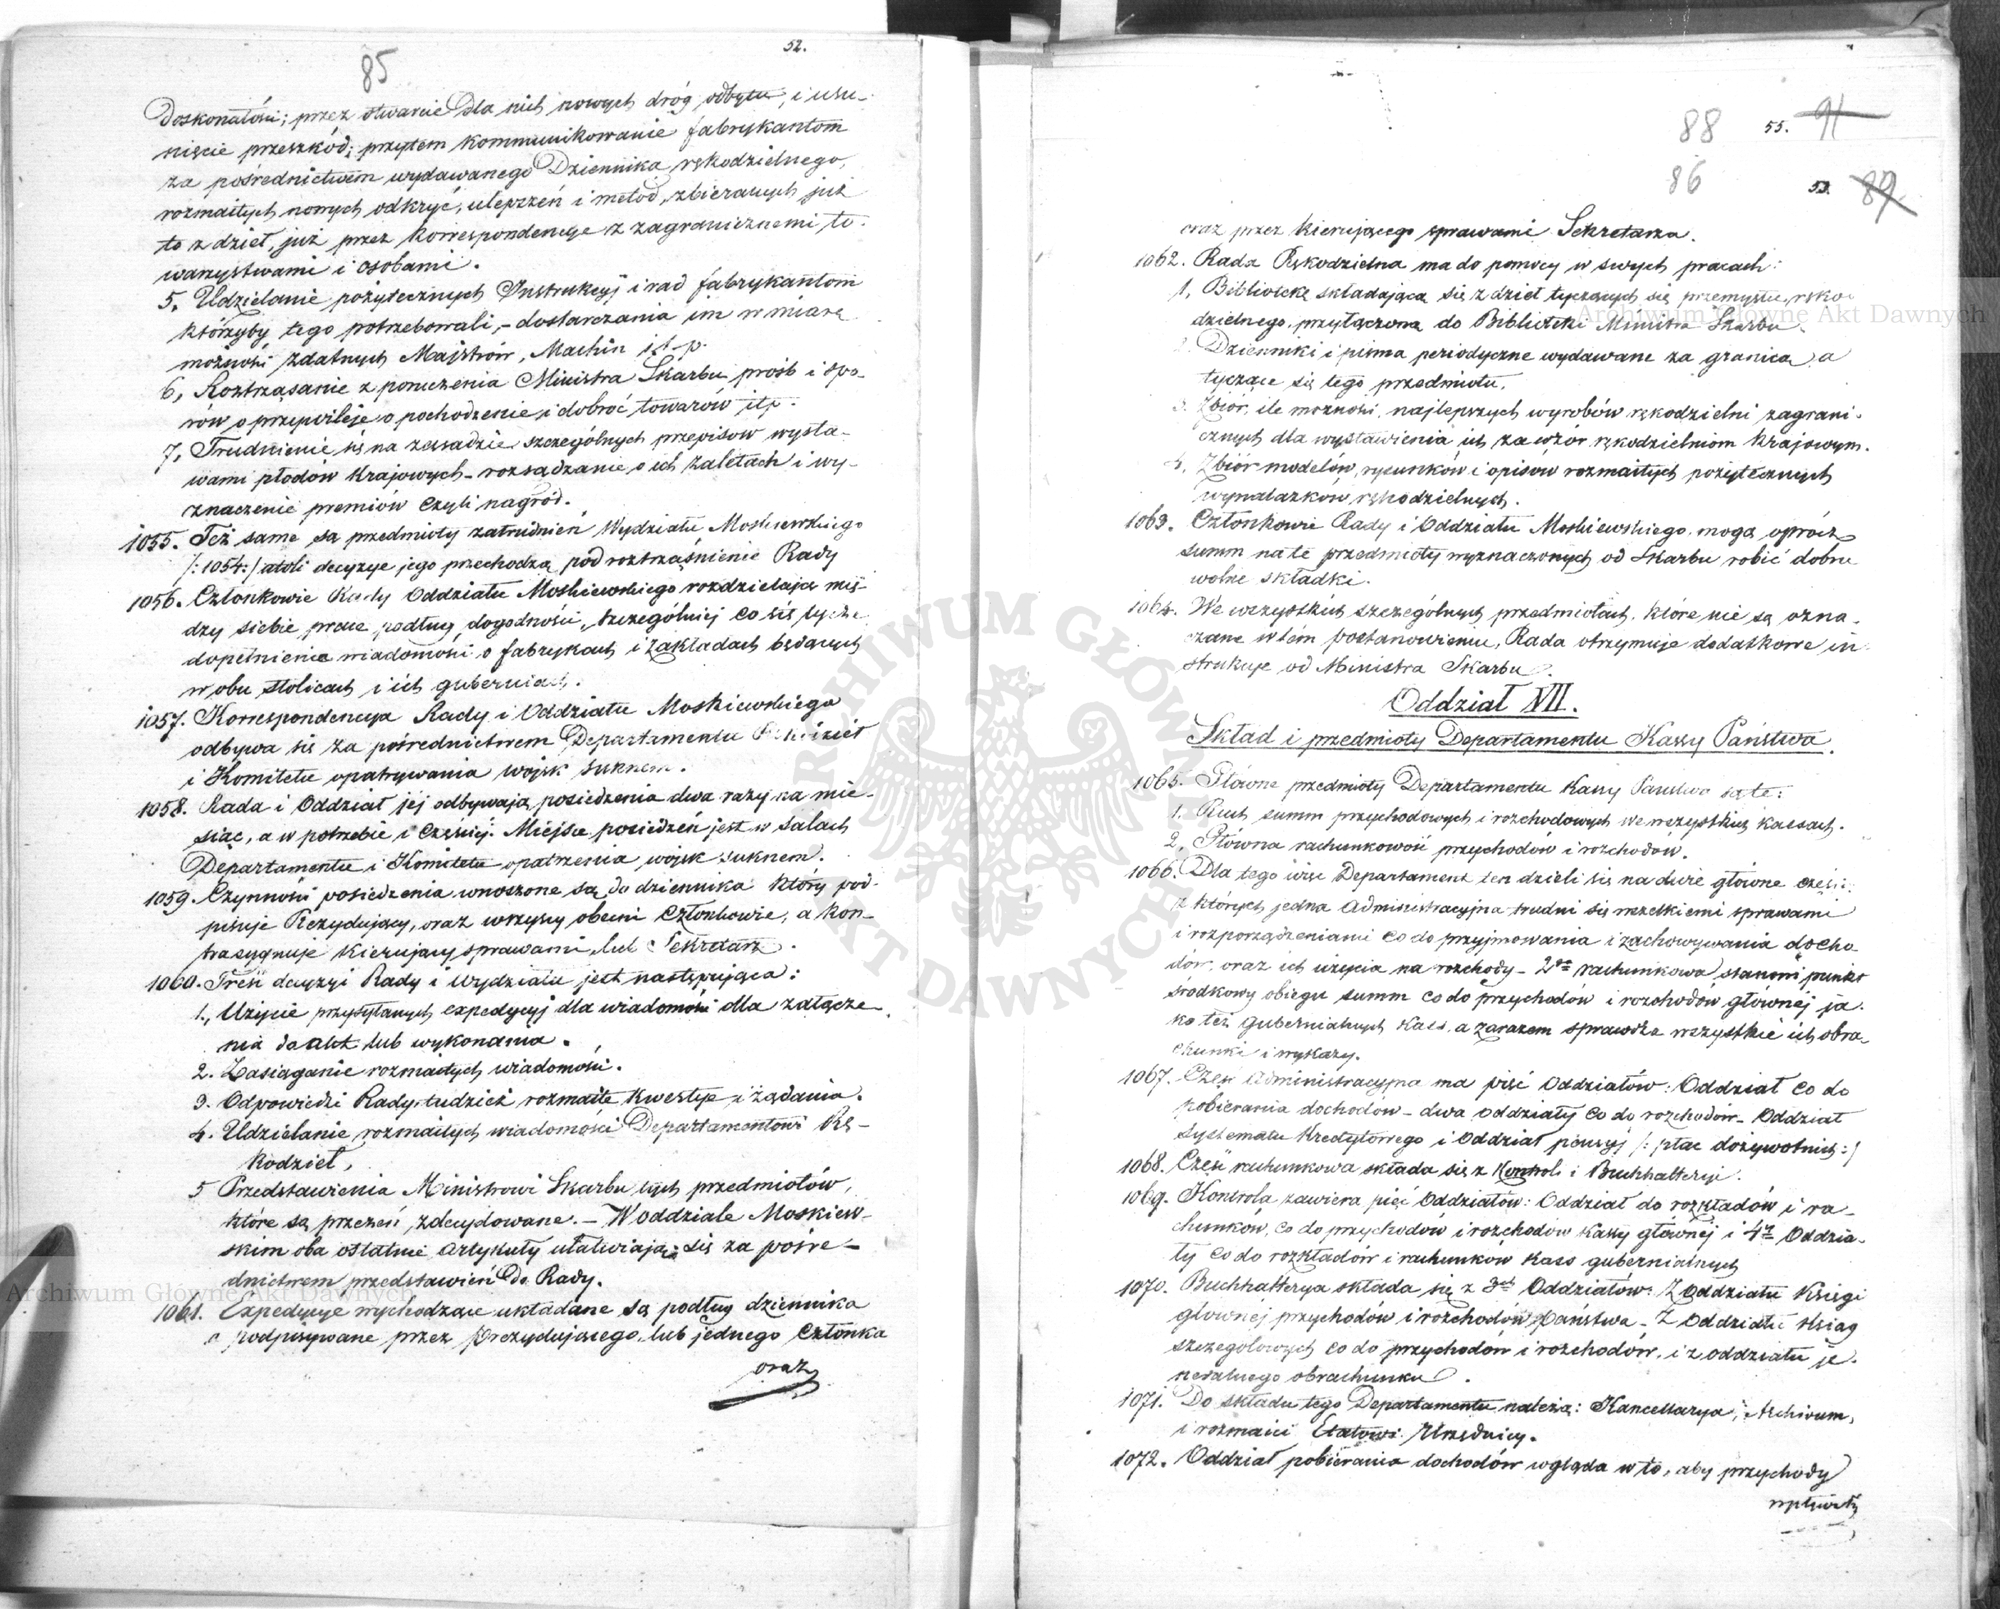 52.
85
doskonałości; przez otwarcie dla nich nowych dróg odbytu, i usu-
nięcie przeszkód; przytem kommunikowanie fabrykantom
za pośrednictwem wydawanego Dziennika rękodzielnego,
rozmaitych nowych odkryć, ulepszeń i metod, zbieranych już
to z dzieł, już przez korrespondencye z zagranicznemi to-
warzystwami i osobami.
5, Udzielanie pożytecznych Instrukcyj i rad fabrykantom
którzyby tego potrzebowali, – dostarczania im w miarę
możności zdatnych Majstrów, Machin i t. p.
6, Roztrząsanie z poruczenia Ministra Skarbu prośb i spo-
rów o przywileje o pochodzenie i dobroć towarów itp.
7, Trudnienie się na zasadzie szczególnych przepisow wysta-
wami płodów krajowych – rozsądzanie o ich zaletach i wy-
znaczenie premiów czyli nagród.
1055. Też same są przedmioty zatrudnień Wydziału Moskiewskiego
/:1054:/ atoli decyzye jego przechodzą pod roztrząśnienie Rady
1056. Członkowie Rady Oddziału Moskiewskiego rozdzielają mię-
dzy siebie prace podług dogodności, szczególniej co się tycze
dopełnienia wiadomości o fabrykach i zakładach będących
w obu stolicach i ich guberniach.
1057. Korrespondencya Rady i Oddziału Moskiewskiego
odbywa się za pośrednictwem Departamentu Rękodzieł
i Komitetu opatrywania wojsk suknem.
1058. Rada i Oddział jej odbywają posiedzenia dwa razy na mie-
siąc, a w potrzebie i częściej. Miejsce posiedzeń jest w salach
Departamentu i Komitetu opatrzenia wojsk suknem.
1059. Czynności posiedzenia wnoszone są do dziennika który pod-
pisuje Prezydujący, oraz wszyscy obecni Członkowie, a kon-
trasygnuje kierujący sprawami lub Sekretarz.
1060. Treść decyzyi Rady i Wydziału jest następująca:
1., Użycie przysyłanych expedycyj dla wiadomości dla załącze-
nia do akt lub wykonania.
2. Zasiąganie rozmaitych wiadomości.
3. Odpowiedzi Rady tudzież rozmaite kwestye i żądania.
4. Udzielanie rozmaitych wiadomości Departamentowi Rę-
kodzieł,
5 Przedstawienia Ministrowi Skarbu tych przedmiotów,
które są przezeń zdecydowane. – W oddziale Moskiew-
skim oba ostatnie artykuły ułatwiają się za pośre-
dnictwem przedstawień do Rady.
1061. Expedycye wychodzące układane są podług dziennika
a podpisywane przez Prezydującego lub jednego Członka
oraz
88 55. 91
86 53. 89
oraz przez kierującego sprawami Sekretarza.
1062. Rada Rękodzielna ma do pomocy w swych pracach:
1, Bibliotekę składającą się z dzieł tyczących się przemysłu ręko-
dzielnego, przyłączoną do Biblioteki Ministra Skarbu.
Dzienniki i pisma periodyczne wydawane za granicą, a
tyczące się tego przedmiotu.
3. Zbiór, ile możności, najlepszych wyrobów rękodzielni zagrani-
cznych dla wystawienia ich za wzór rękodzielniom krajowym.
4, Zbiór modelów, rysunków i opisów rozmaitych pożytecznych
wynalazków rękodzielnych.
1063. Członkowie Rady i Oddziału Moskiewskiego mogą oprócz
summ na te przedmioty wyznaczonych od Skarbu robić dobro
wolne składki.
1064. We wszystkich szczególnych przedmiotach, które nie są ozna-
czone w tém postanowieniu, Rada otrzymuje dodatkowe in-
strukcye od Ministra Skarbu.
Oddział VII.
Skład i przedmioty Departamentu Kassy Państwa.
1065. Główne przedmioty Departamentu Kassy Państwa są te:
1. Ruch summ przychodowych i rozchodowych we wszystkich kassach.
2, Główna rachunkowość przychodów i rozchodów.
1066. Dla tego więc Departament ten dzieli się na dwie główne części;
z których jedna administracyjna trudni się wszelkiemi sprawami
i rozporządzeniami co do przyjmowania i zachowywania docho-
dów, oraz ich użycia na rozchody – 2ga rachunkowa stanowi punkt
środkowy obiegu summ co do przychodów i rozchodów głównej ja-
ko też gubernialnych kass, a zarazem sprawdza wszystkie ich obra-
chunki i wykazy.
1067. Część administracyjna ma pięć oddziałów: Oddział co do
pobierania dochodów – dwa oddziały co do rozchodów – Oddział
systematu kredytowego i Oddział pensyj /: płac dożywotnich :/
1068. Część rachunkowa składa się z Kontroli i Buchhalteryi.
1069. Kontrola zawiera pięć Oddziałów: Oddział do rozkładów i ra-
chunków, co do przychodów i rozchodów kassy głównej i 4ry Oddzia-
ły co do rozkładów i rachunków kass gubernialnych
1070. Buchhalterya składa się z 3ch Oddziałów: Z Oddziału Księgi
głównej przychodów i rozchodów Państwa – Z Oddziału Ksiąg
szczegółowych co do przychodów i rozchodów, i z oddziału je-
neralnego obrachunku.
1071. Do składu tego Departamentu należą: Kancellarya, Archiwum,
i rozmaici Etatowi Urzędnicy.
1072. Oddział pobierania dochodów wgląda w to, aby przychody
wpływały
Archiwum Główne Akt Dawnych
Archiwum Główne Akt Dawnych
ARCHIWUM GŁÓWNE AKT DAWNYCH